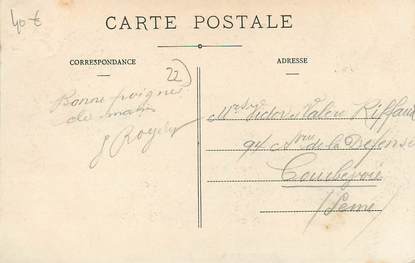 40 €
CARTE POSTALE
CORRESPONDANCE
ADRESSE
22
Bonne poignée
de main
Mrs Victor et Valère Riffaud
94 Av. de la Défense
Courbevoie
(Seine)